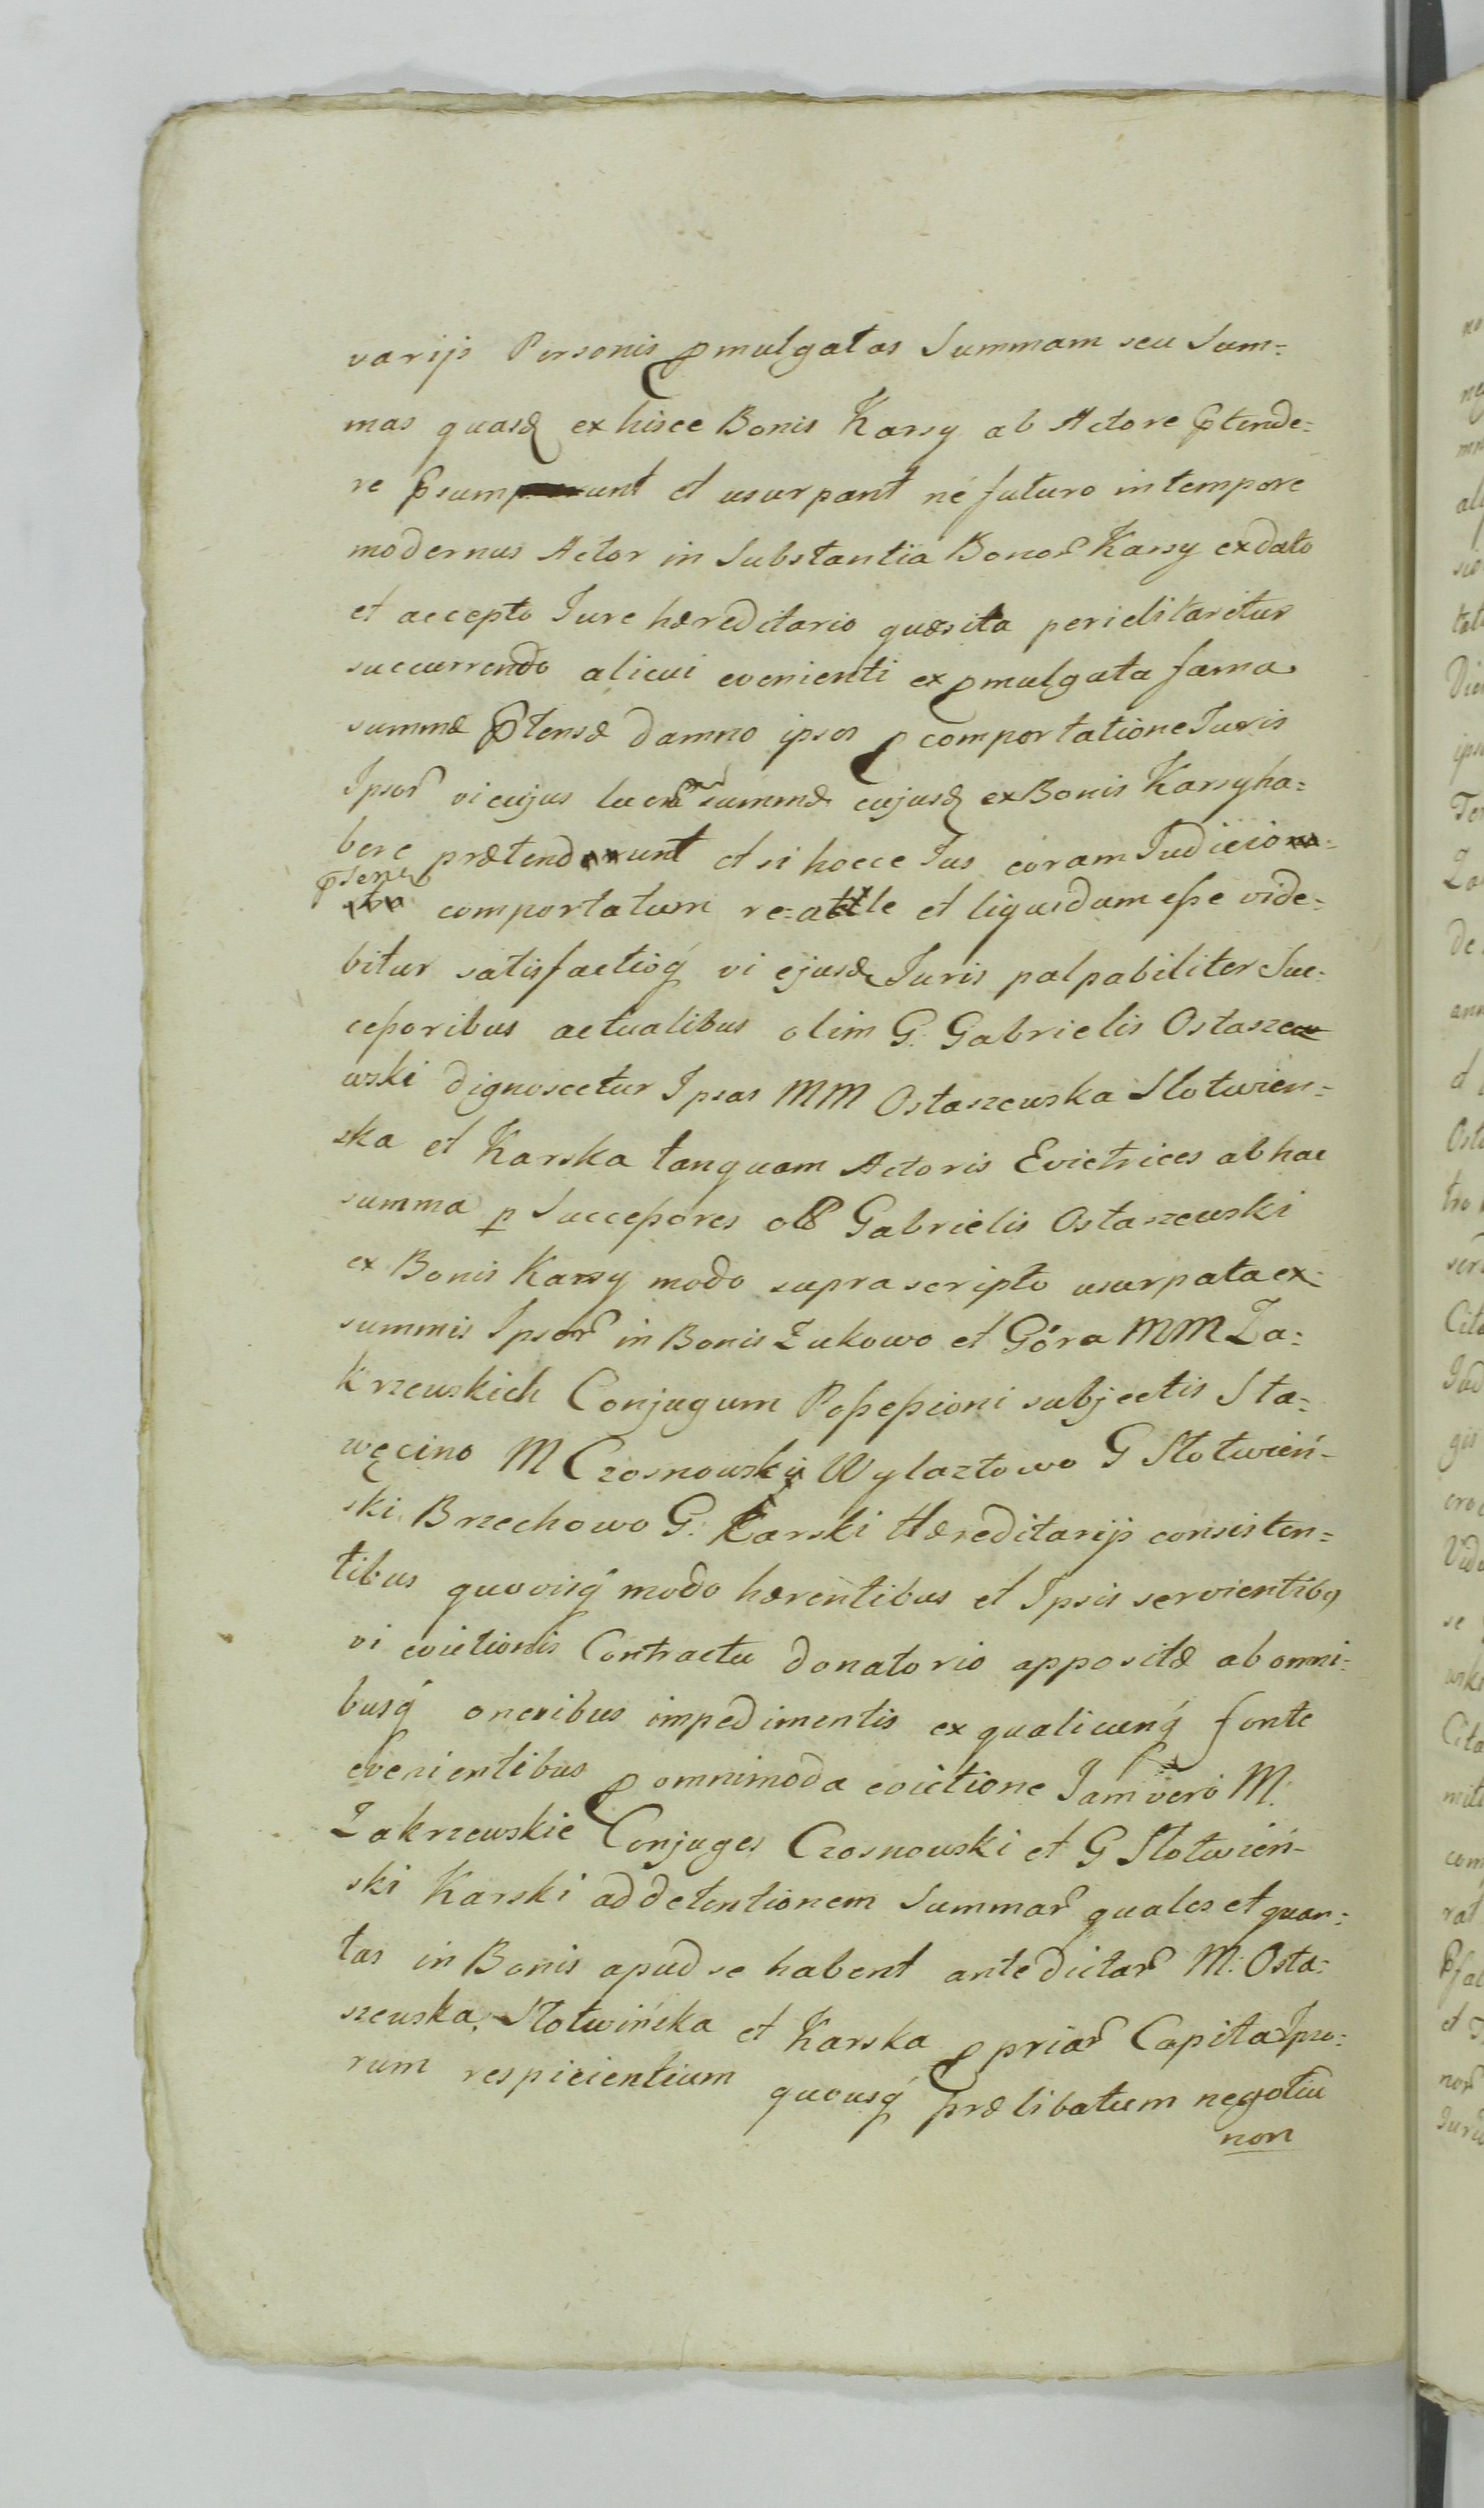 varijs Personis pmulgatas Summam seu Sum=
mas quasd ex hisce Bonis Karsy ab Actore Ptende=
re Psumunt et usurpant né futuro in tempore
modernus Actor in Substantia Bonor Karsy ex dato
et accepto Jure hæreditario quæsita periclitaretur
succurrendo alicui evenienti ex pmulgata fama
summæ Ptensæ damno ipsos p comportatione Juris
Ipsor vi cujus summæ cujusd ex Bonis Karsy ha=
bere prætendunt et si hocce Jus coram Judicio
comportatum re=ale et liquidum esse vide=
bitur satisfactioq vi ejusd Juris palpabiliter Suc=
cessoribus actualibus olim G. Gabrielis Ostasze
wski dignoscetur Ipsas MM Ostaszewska Słotwien=
ska et Karska tanquam Actoris Evictrices ab hac
summa p Successores olð Gabrielis Ostaszewski
ex Bonis Karsy modo supra scripto usurpata ex
summis Ipsor in Bonis Zukowo et Góra MM Za=
krzewskich Conjugum Possessioni subjectis Sta=
węcino M Czosnowski Wylazłowo G Słotwień=
ski Brzechowo G. Karski Hæreditarijs consisten=
tibus quovisq modo hærentibus et Ipsis servientibq
vi evictionis Contractu donatorio appositæ ab omni=
busq oneribus impedimentis ex qualicunq fonte
evenientibus p omnimoda evictione Jam vero M.
Zakrzewskie Conjuges Czosnowski et G Słotwień=
ski Karski ad detentionem Summar quales et quan=
tas in Bonis apud se habent antedictar M. Osta=
szewska, Słotwińska et Karska ppriar Capita Ipso=
rum respicientium quousq prælibatum negotiu
non